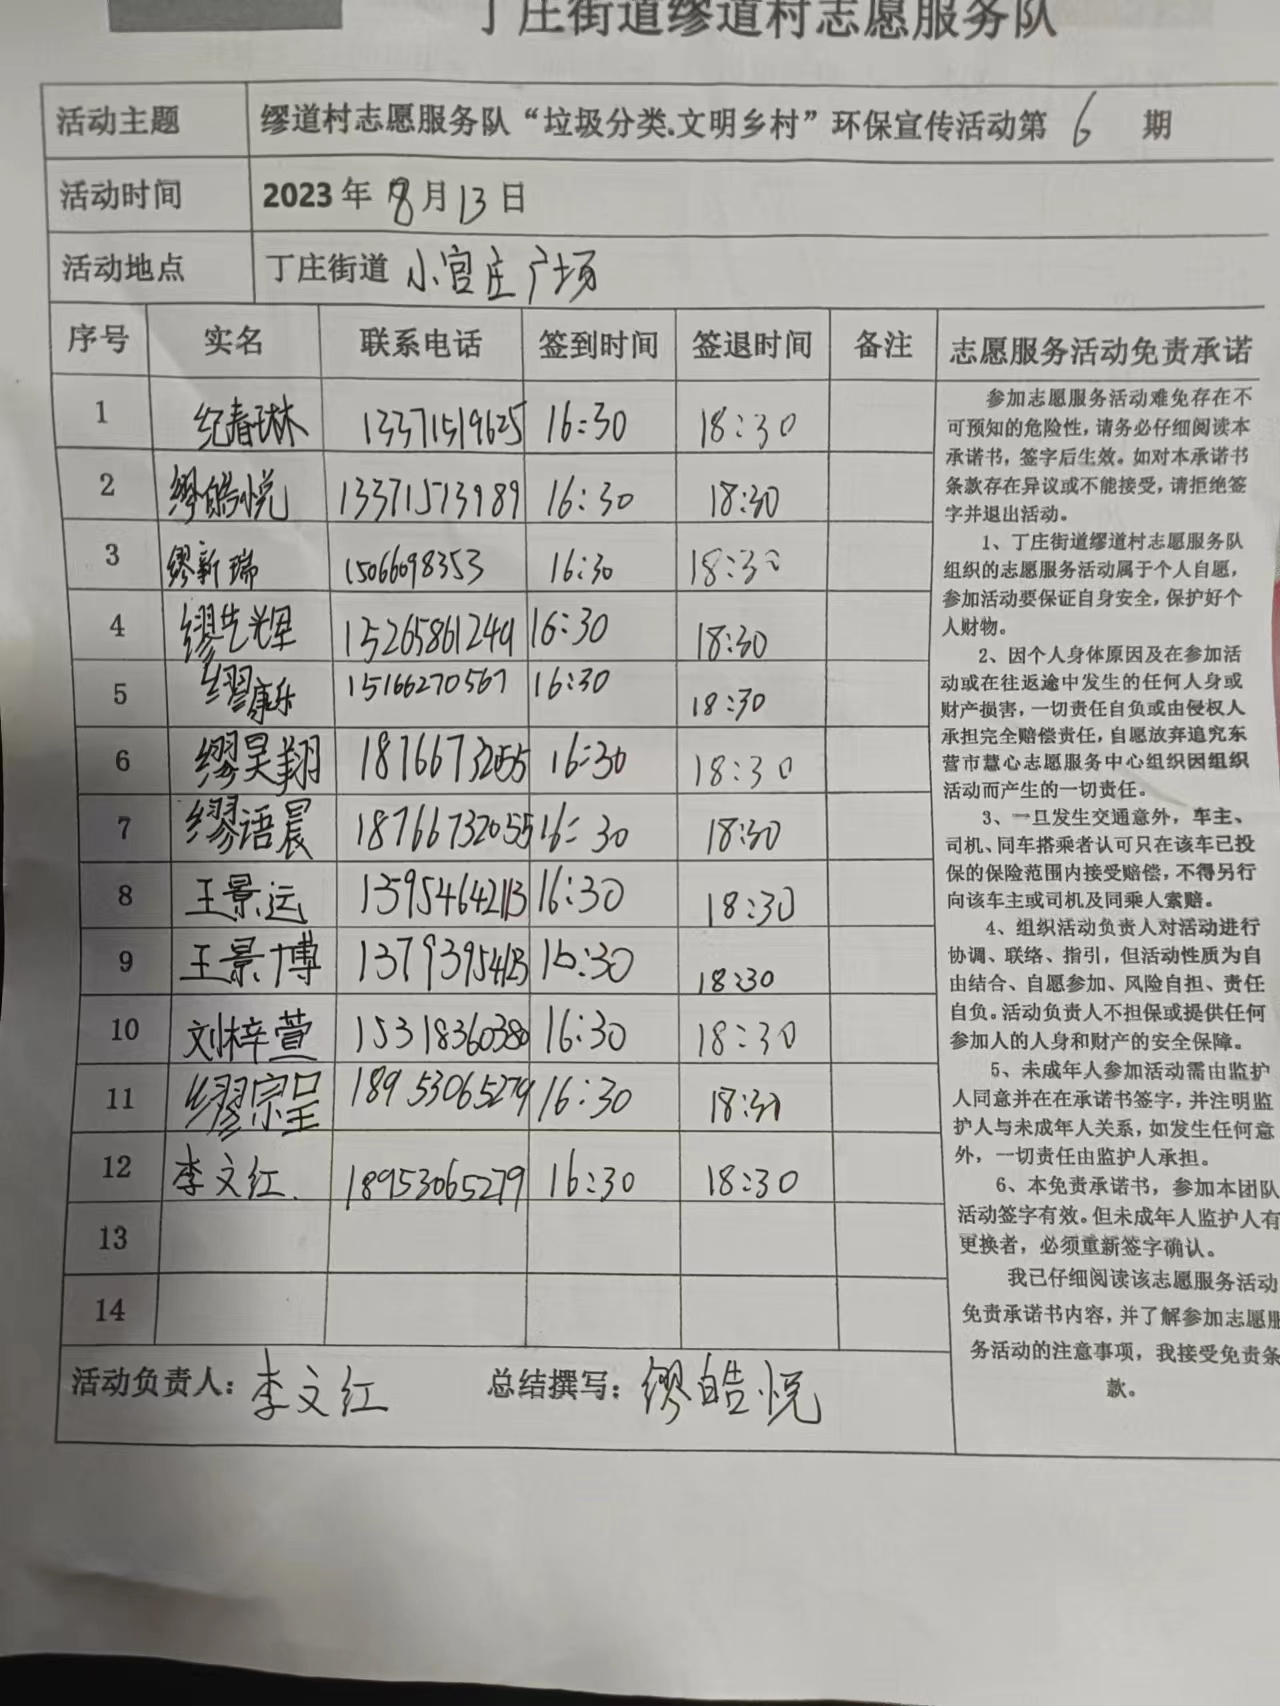 丁庄街道缪道村志愿服务队
活动主题 缪道村志愿服务队“垃圾分类.文明乡村”环保宣传活动第 6 期
活动时间 2023年 8月 13日
活动地点 丁庄街道 小官庄广场
序号 实名 联系电话 签到时间 签退时间 备注
1 纪春琳 13371519625 16:30 18:30
2 缪皓悦 13371513989 16:30 18:30
3 缪新瑞 15066098353 16:30 18:30
4 缪艺辉 15265861249 16:30 18:30
5 缪康乐 15166270567 16:30 18:30
6 缪昊翔 18766732055 16:30 18:30
7 缪语晨 18766732055 16:30 18:30
8 王景远 13954642113 16:30 18:30
9 王景博 13793954123 16:30 18:30
10 刘梓萱 15318360380 16:30 18:30
11 缪宗呈 18953065279 16:30 18:30
12 李文红. 18953065279 16:30 18:30
13
14
活动负责人：李文红 总结撰写：缪皓悦
志愿服务活动免责承诺
参加志愿服务活动难免存在不
可预知的危险性，请务必仔细阅读本
承诺书，签字后生效。如对本承诺书
条款存在异议或不能接受，请拒绝签
字并退出活动。
1、丁庄街道缪道村志愿服务队
组织的志愿服务活动属于个人自愿，
参加活动要保证自身安全，保护好个
人财物。
2、因个人身体原因及在参加活
动或在往返途中发生的任何人身或
财产损害，一切责任自负或由侵权人
承担完全赔偿责任，自愿放弃追究东
营市慧心志愿服务中心组织因组织
活动而产生的一切责任。
3、一旦发生交通意外，车主、
司机、同车搭乘者认可只在该车已投
保的保险范围内接受赔偿，不得另行
向该车主或司机及同乘人索赔。
4、组织活动负责人对活动进行
协调、联络、指引，但活动性质为自
由结合、自愿参加、风险自担、责任
自负。活动负责人不担保或提供任何
参加人的人身和财产的安全保障。
5、未成年人参加活动需由监护
人同意并在在承诺书签字，并注明监
护人与未成年人关系，如发生任何意
外，一切责任由监护人承担。
6、本免责承诺书，参加本团队
活动签字有效。但未成年人监护人有
更换者，必须重新签字确认。
我已仔细阅读该志愿服务活动
免责承诺书内容，并了解参加志愿服
务活动的注意事项，我接受免责条
款。